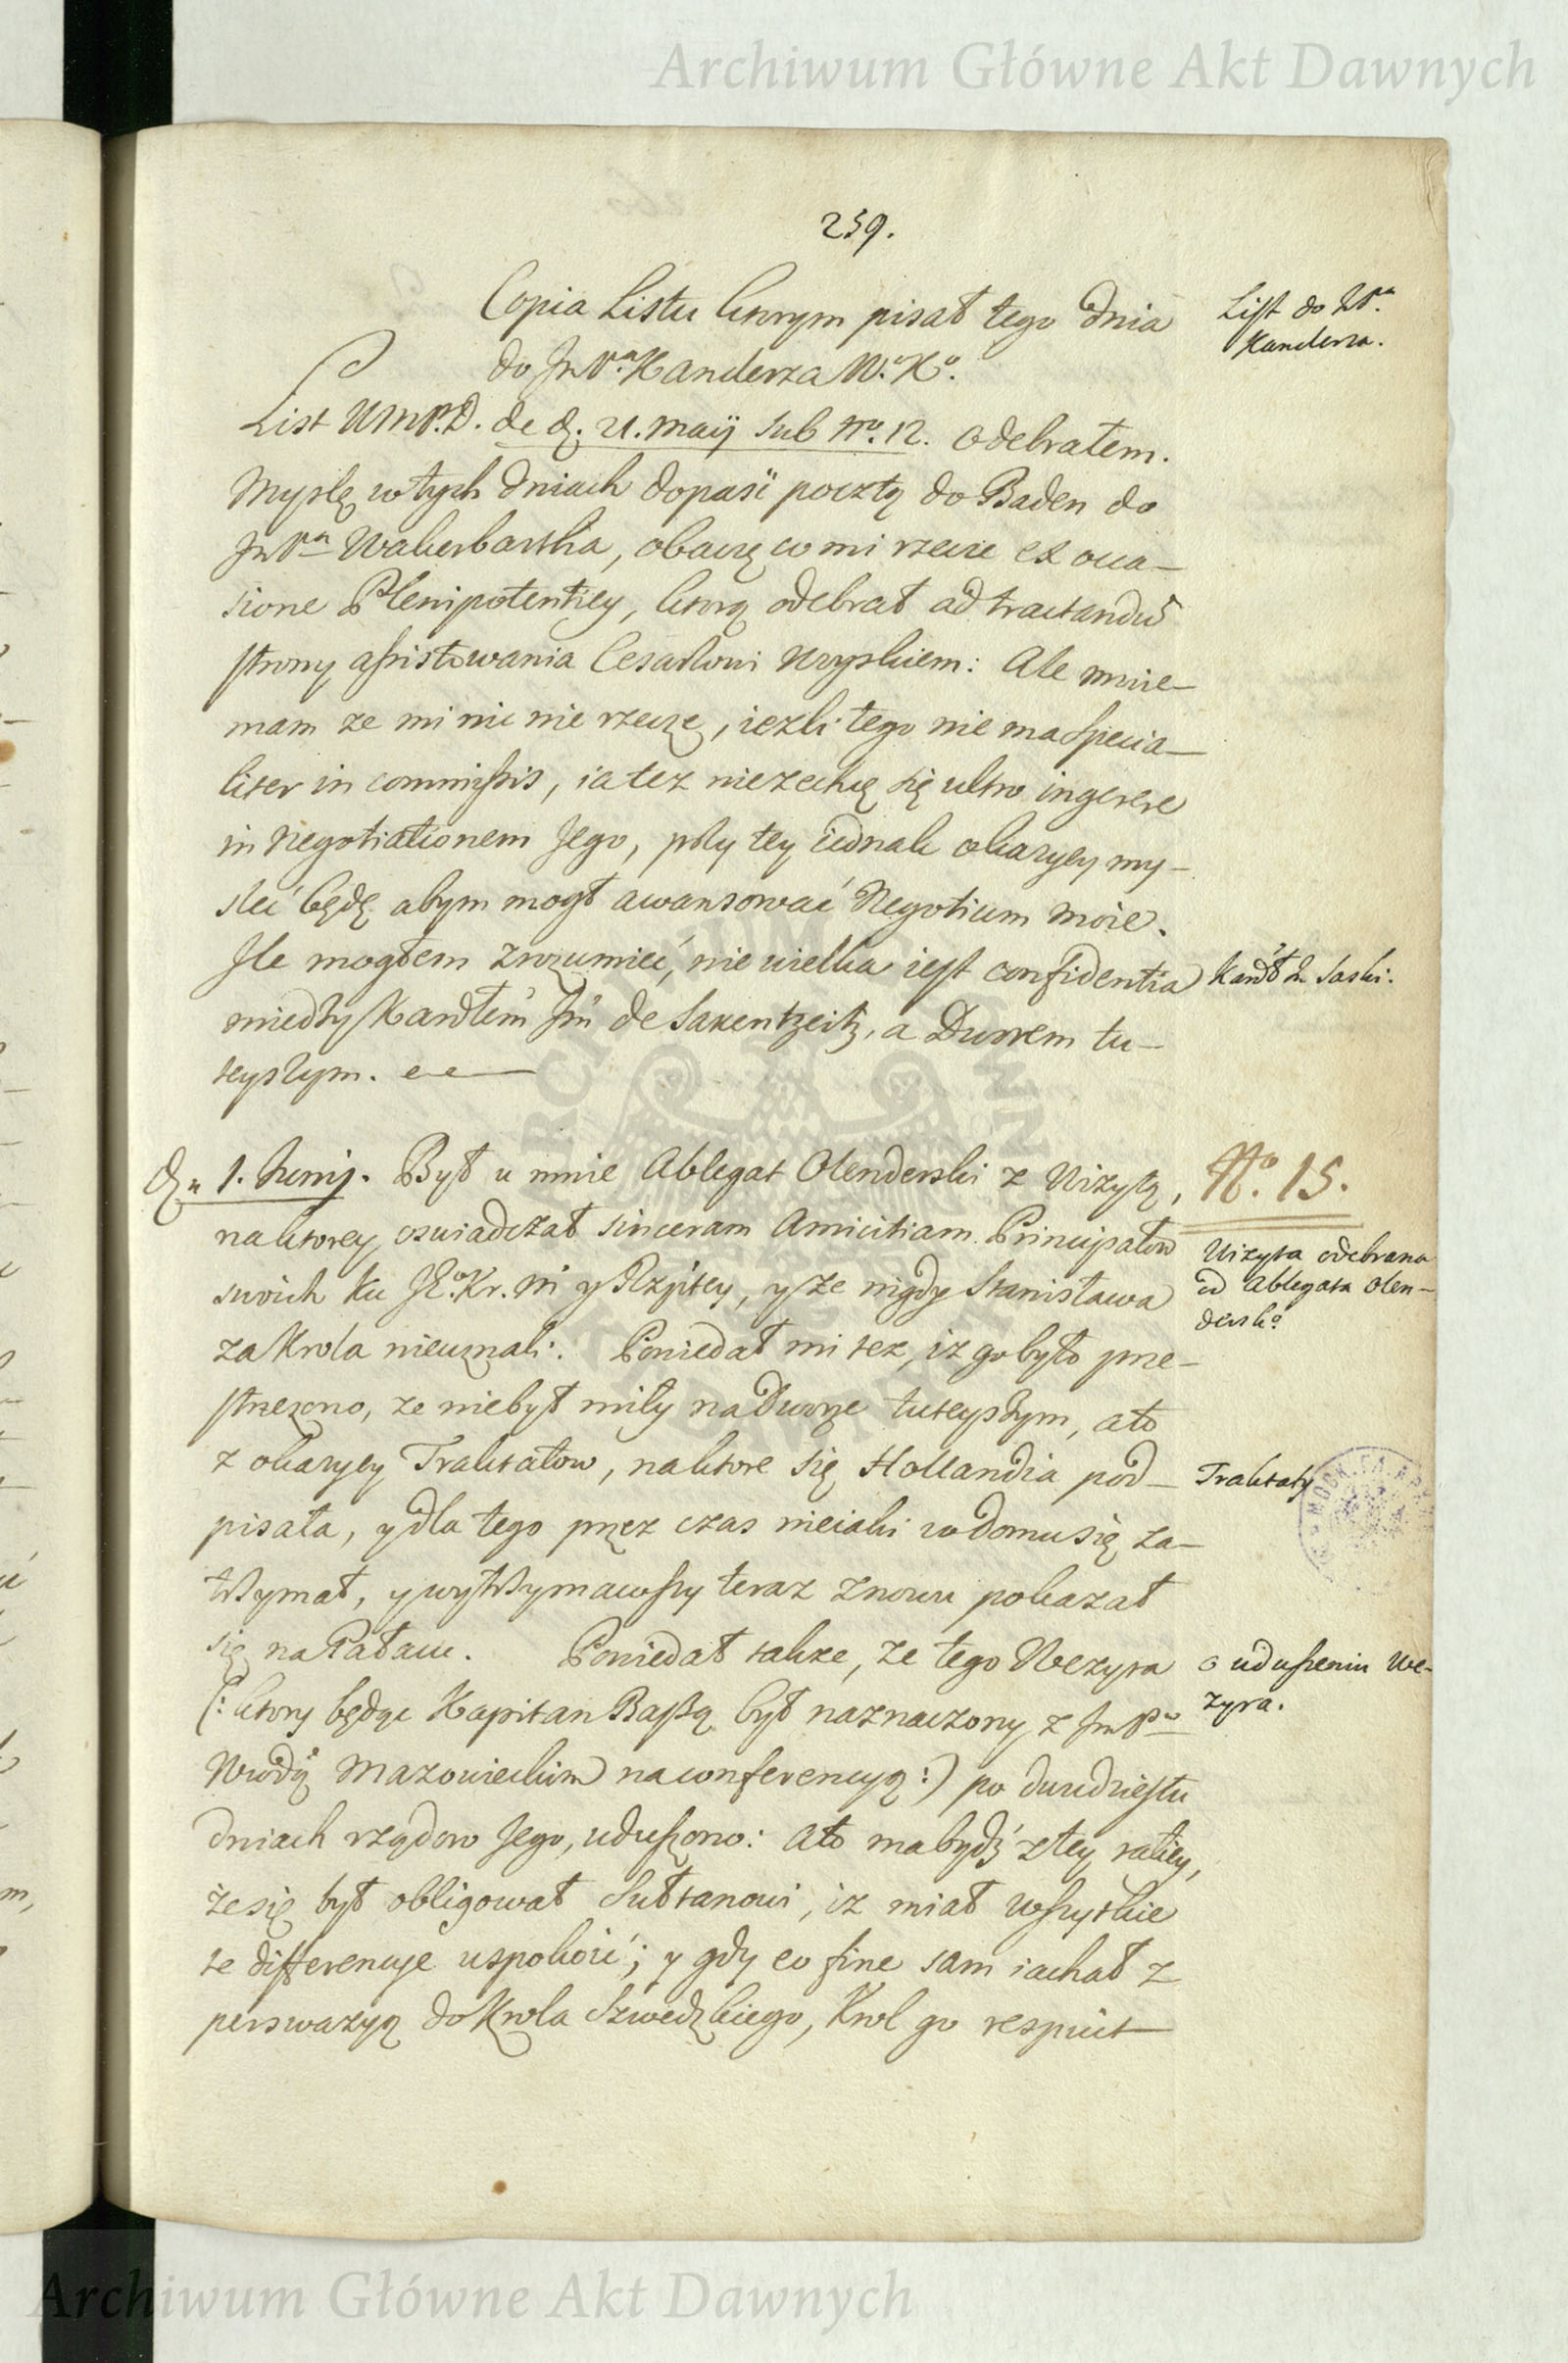 Archiwum Główne Akt Dawnych
259.
Copia Listu ktorym pisał tego dnia
List do JP.na
Kanclerza.
do Jm P.na Kanclerza W.o K.o
List WmP.D. de d. 21. maij sub Nro. 12. odebrałem.
Myslę w tych dniach dopaść pocztą do Baden do
Jm P.na Wakerbartha, obaczę co mi rzecze ex occa-
sione Plenipotentiey, ktorą odebrał ad tractandũ
strony assistowania Cesarzowi woyskiem: Ale mnie-
mam ze mi nic nie rzecze, iezli tego nie ma specia-
liter in commissis, ia tez niezechcę się ultro ingerere
in negotiationem Jego, przy tey iednak okazyey my-
slić będę abym mogł awansować Negotium moie.
Ile mogłem zrozumieć, nie wielka iest confidentia
Kardł de Saski.
miedzy Kardłem Jm de Saxentzeitz, a Dworem tu-
teyszym.
d. 1. Junij. Był u mnie Ablegat Olenderski z Wizytą,
No. 15.
na ktorey oswiadczał sinceram Amicitiam Principałow
Wizyta odebrana
od Ablegata Olen-
dersko
swoich ku JK.o Kr. M y Rzpltey, y ze nigdy Stanisława
za Krola nieuznali. Powiedał mi tez, iz go było prze-
strzezono, ze niebył miły na Dworze tuteyszym, a to
z okazyey Traktatow, na ktore się Hollandia pod-
Traktaty
pisała, y dla tego przez czas nieiaki w domu się za-
trzymał, y wytrzymawszy teraz znowu pokazał
się na Pałacu. Powiedał takze, ze tego Wezyra
o uduszeniu We-
zyra.
(: ktory będąc Kapitan Baszą był naznaczony z Jm P.m
Wwodą Mazowieckim na conferencyą :) po dwudziestu
dniach rządow Jego, uduszono: A to ma bydź z tey ratiey,
ze się był obligował Sułtanowi, iz miał wszystkie
te differencye uspokoić; y gdy eo fine sam iachał z
perswazyą do Krola Szwedzkiego, Krol go respuit
Archiwum Główne Akt Dawnych